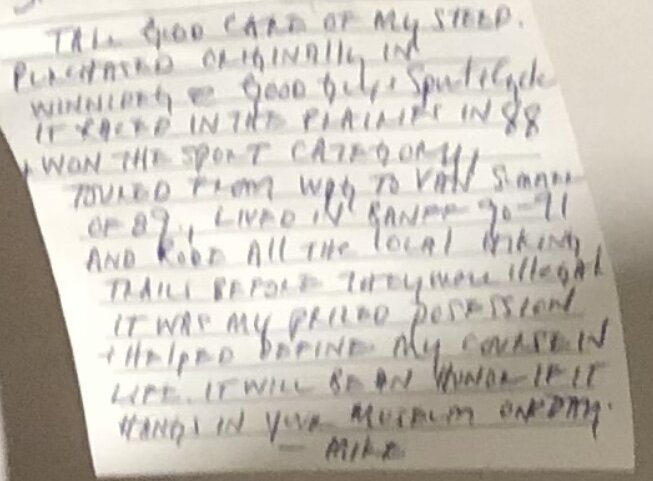 TAKE GOOD CARE OF MY STEED.
PURCHASED ORIGINALLY IN
WINNIPEG @ GOOD Guys Sport & Cycle
IT RACED IN THE PRAIRIES IN 88
+ WON THE SPORT CATEGORY,
TOURED FROM WPG TO VAN SUMMER
OF 89, LIVED IN BANFF 90-91
AND RODE ALL THE LOCAL HIKING
TRAILS BEFORE THEY WERE IllEGAL
IT WAS MY PRIZED POSESSION
+ HELPED DEFINE MY COURSE IN
LIFE. IT WILL BE AN HONOR IF IT
HANGS IN YOUR MUSEUM ONE DAY.
- MIKE